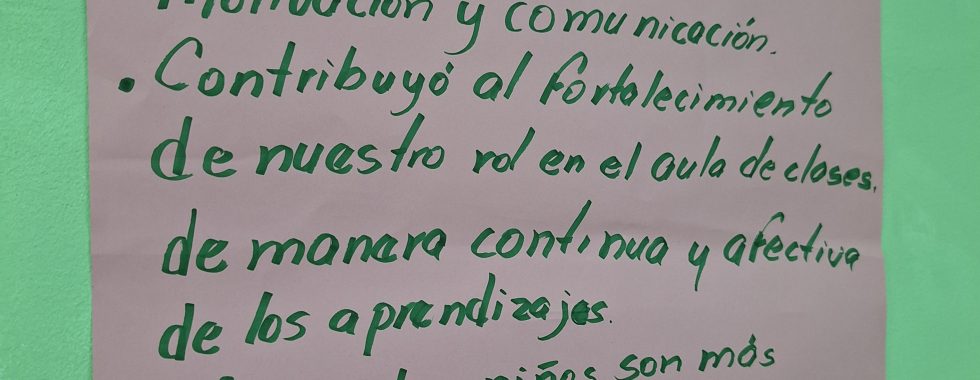 Motivación y comunicación.
• Contribuyó al fortalecimiento
de nuestro rol en el aula de clases.
de manera continua y afectiva
de los aprendizajes.
niños son más